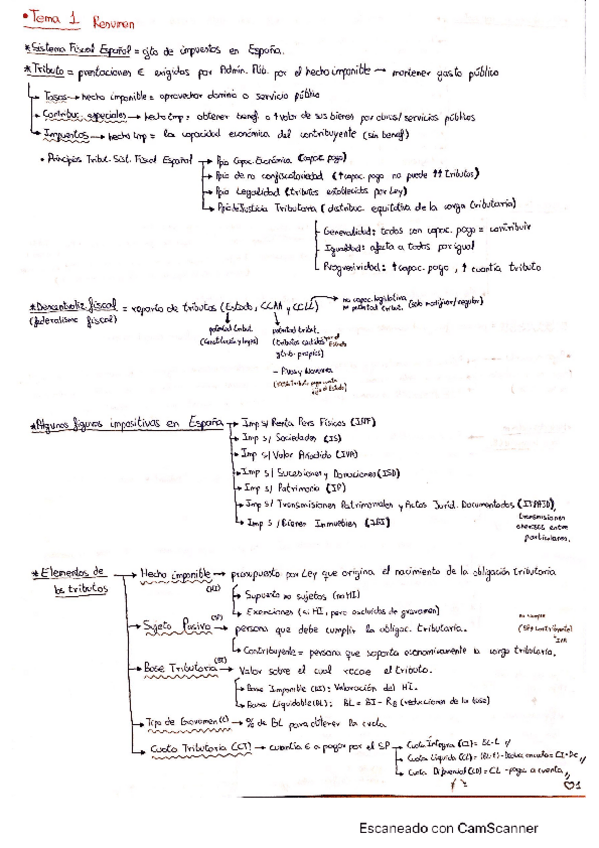 • Tema 1 Resumen
* Sistema Fiscal Español = cjto de impuestos en España.
* Tributo = prestaciones € exigidos por Admin. Púb. por el hecho imponible → mantener gasto público
→ Tasas → hecho imponible = aprovechar dominio o servicio público
→ Contribuc. especiales → hecho imp = obtener benef. o ↑valor de sus bienes por obras/servicios públicos
→ Impuestos → hecho imp = la capacidad económica del contribuyente (sin benef)
• Principios Tribut. Sist. Fiscal Español → Ppio Capac. Económica (capac. pago)
→ Ppio de no confiscatoriedad (↑capac. pago no puede ↑↑ tributos)
→ Ppio Legalidad (tributos establecidos por Ley)
→ Ppio de Justicia Tributaria (distribuc. equitativa de la carga tributaria)
- Generalidad: todos con capac. pago = contribuir
- Igualdad: afecta a todos por igual
- Progresividad: ↑capac. pago, ↑ cuantía tributo
* Descentraliz fiscal = reparto de tributos (Estado, CCAA y CCLL) → no capac. legislativa
(federalismo fiscal)
no potestad tribut. (solo modificar/regular)
potestad tribut.
(Constitución y leyes)
potestad tribut.
(tributos cedidos por el Estado
y trib. propios)
- P. Vasco y Navarra
* Algunas figuras impositivas en España → Imp s/ Renta Pers Físicas (IRPF)
→ Imp s/ Sociedades (IS)
→ Imp s/ Valor Añadido (IVA)
→ Imp s/ Sucesiones y Donaciones (ISD)
→ Imp s/ Patrimonio (IP)
→ Imp s/ Transmisiones Patrimoniales y Actos Juríd. Documentados (ITPAJD)
transmisiones
entre
particulares.
→ Imp s/ Bienes Inmuebles (IBI)
* Elementos de los tributos
→ Hecho imponible (HI) → presupuesto por Ley que origina el nacimiento de la obligación tributaria
→ Supuesto no sujetos (no HI)
→ Exenciones (sí HI, pero excluidos de gravamen)
→ Sujeto Pasivo (SP) → persona que debe cumplir la obligac. tributaria.
no siempre
IVA
→ Contribuyente = persona que soporta económicamente la carga tributaria.
→ Base Tributaria (BT) → Valor sobre el cual recae el tributo.
→ Base Imponible (BI): Valoración del HI.
→ Base Liquidable (BL): BL = BI - RB (reducciones de la base)
→ Tipo de Gravamen (t) → % de BL para obtener la cuota
→ Cuota Tributaria (CT) → cuantía € a pagar por el SP → Cuota Íntegra (CI) = BL·t //
→ Cuota Líquida (CL) = (BL·t) - Deducc en cuota = CI - Dc //
→ Cuota Diferencial (CD) = CL - pagos a cuenta //
1
Escaneado con CamScanner